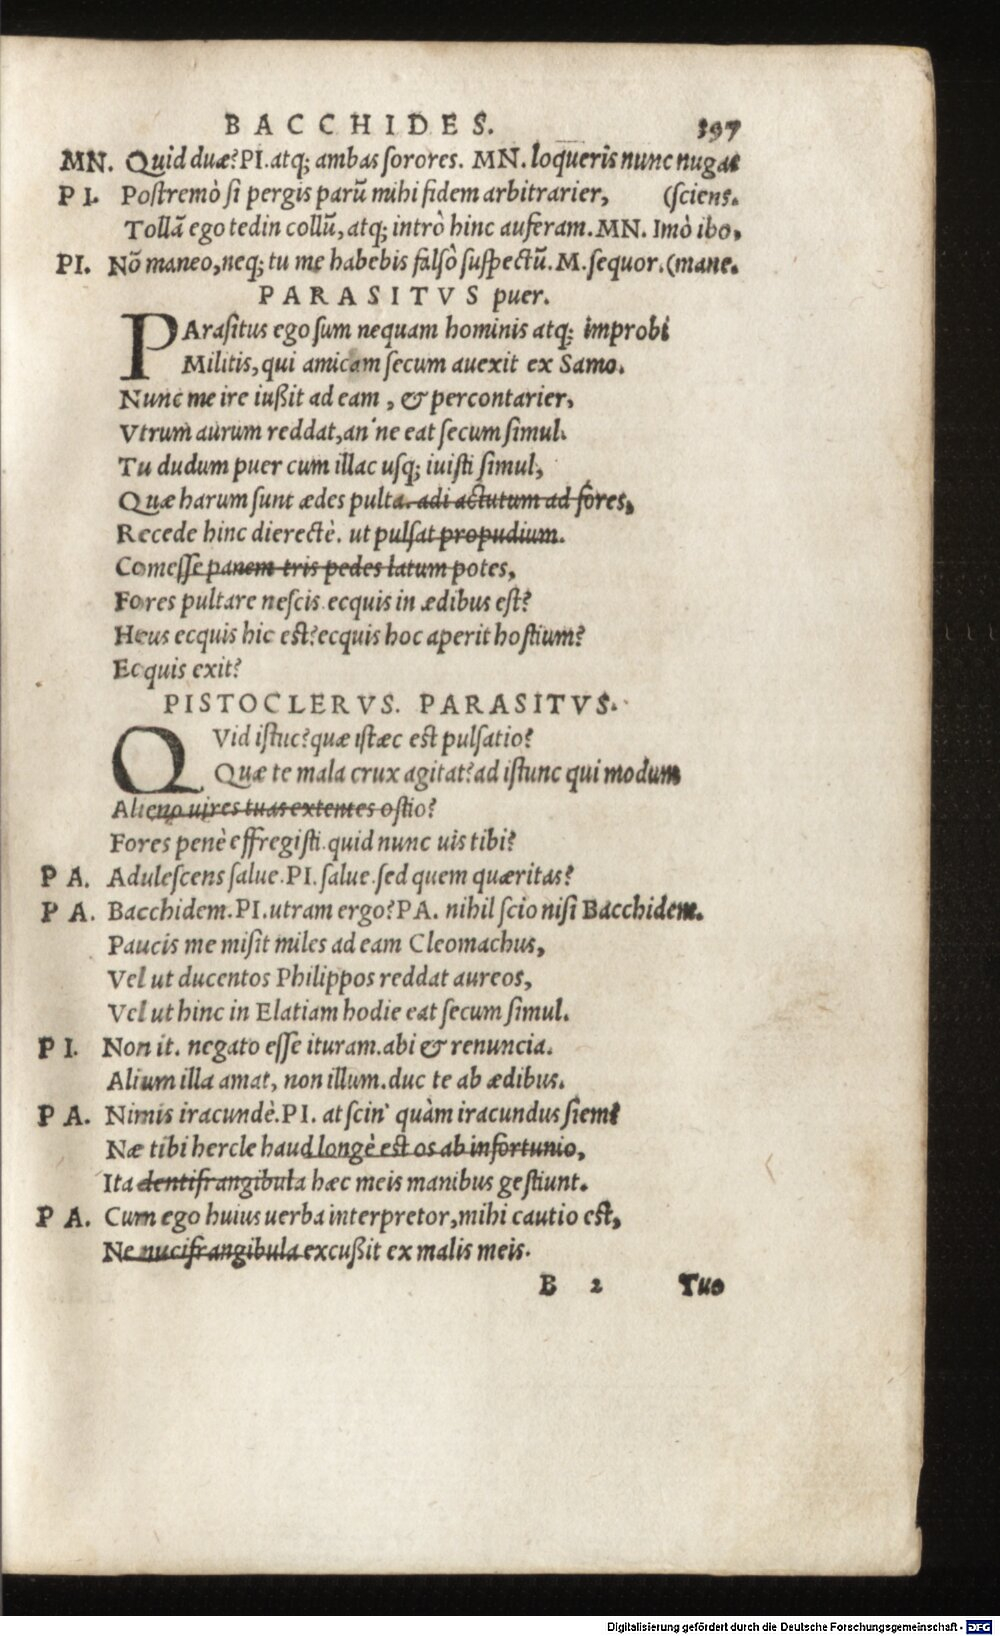 BACCHIDES. 197
MN. Quid duæ? PI. atq; ambas sorores. MN. loqueris nunc nugas
PI. Postremò si pergis parũ mihi fidem arbitrarier, (sciens.
Tollã ego te din collũ, atq; intrò hinc auferam. MN. Imò ibo,
PI. Nõ maneo, neq; tu me habebis falsò suspectũ. M. sequor. (mane.
PARASITVS puer.
PArasitus ego sum nequam hominis atq; improbi
Militis, qui amicam secum auexit ex Samo.
Nunc me ire iußit ad eam, & percontarier,
Vtrum aurum reddat, an'ne eat secum simul.
Tu dudum puer cum illac usq; iuisti simul,
Quæ harum sunt ædes pulta. adi actutum ad fores,
Recede hinc dierectè. ut pulsat propudium.
Comesse panem tris pedes latum potes,
Fores pultare nescis. ecquis in ædibus est?
Heus ecquis hic est? ecquis hoc aperit hostium?
Ecquis exit?
PISTOCLERVS. PARASITVS.
QVid istuc? quæ istæc est pulsatio?
Quæ te mala crux agitat? ad istunc qui modum
Alieno uires tuas extentes ostio?
Fores penè effregisti. quid nunc uis tibi?
PA. Adulescens salue. PI. salue. sed quem quæritas?
PA. Bacchidem. PI. utram ergo? PA. nihil scio nisi Bacchidem.
Paucis me misit miles ad eam Cleomachus,
Vel ut ducentos Philippos reddat aureos,
Vel ut hinc in Elatiam hodie eat secum simul.
PI. Non it. negato esse ituram. abi & renuncia.
Alium illa amat, non illum. duc te ab ædibus.
PA. Nimis iracundè. PI. at scin' quàm iracundus siem?
Næ tibi hercle haud longè est os ab infortunio,
Ita dentifrangibula hæc meis manibus gestiunt.
PA. Cum ego huius uerba interpretor, mihi cautio est,
Ne nucifrangibula excußit ex malis meis.
B 2 Tuo
Digitalisierung gefördert durch die Deutsche Forschungsgemeinschaft - DFG